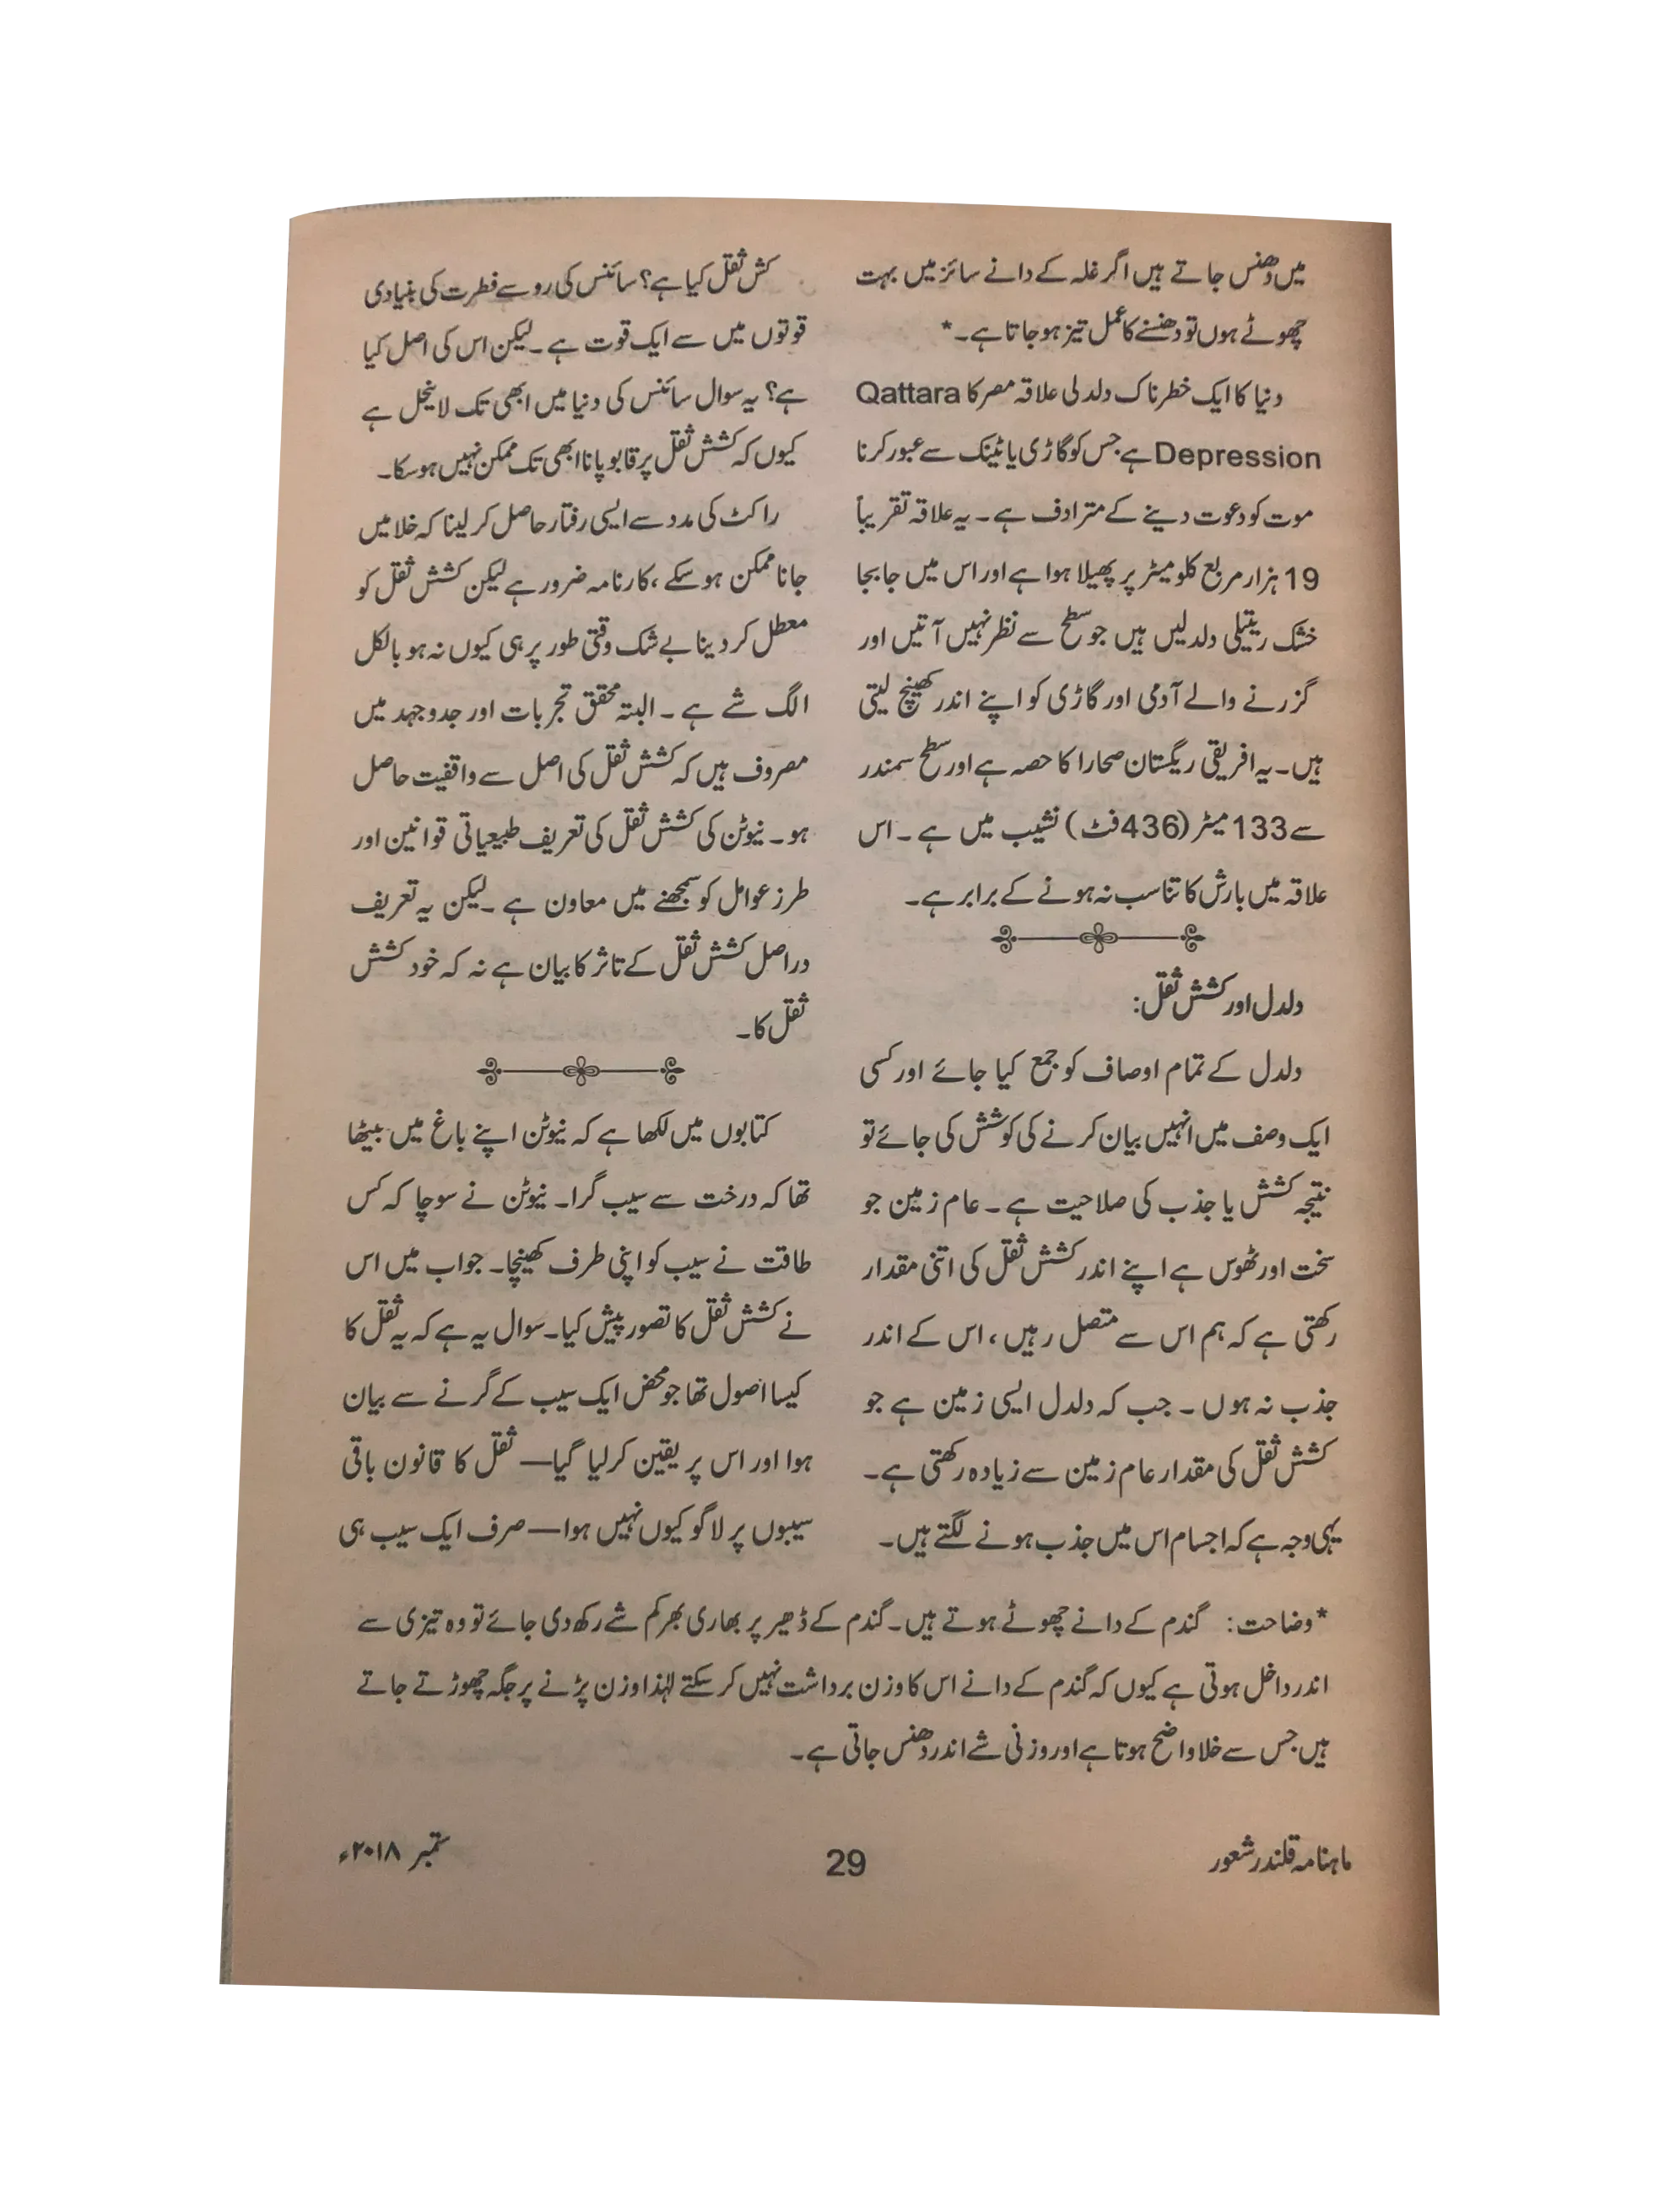 میں دھنس جاتے ہیں اگر غلہ کے دانے سائز میں بہت
چھوٹے ہوں تو دھنسنے کا عمل تیز ہو جاتا ہے۔*
دنیا کا ایک خطرناک دلدلی علاقہ مصر کا Qattara
Depression ہے جس کو گاڑی یا ٹینک سے عبور کرنا
موت کو دعوت دینے کے مترادف ہے۔ یہ علاقہ تقریباً
19 ہزار مربع کلو میٹر پر پھیلا ہوا ہے اور اس میں جابجا
خشک ریتیلی دلدلیں ہیں جو سطح سے نظر نہیں آتیں اور
گزرنے والے آدمی اور گاڑی کو اپنے اندر کھینچ لیتی
ہیں۔ یہ افریقی ریگستان صحارا کا حصہ ہے اور سطح سمندر
سے 133 میٹر (436 فٹ) نشیب میں ہے۔ اس
علاقہ میں بارش کا تناسب نہ ہونے کے برابر ہے۔
دلدل اور کشش ثقل:
دلدل کے تمام اوصاف کو جمع کیا جائے اور کسی
ایک وصف میں انہیں بیان کرنے کی کوشش کی جائے تو
نتیجہ کشش یا جذب کی صلاحیت ہے۔ عام زمین جو
سخت اور ٹھوس ہے اپنے اندر کشش ثقل کی اتنی مقدار
رکھتی ہے کہ ہم اس سے متصل رہیں، اس کے اندر
جذب نہ ہوں۔ جب کہ دلدل ایسی زمین ہے جو
کشش ثقل کی مقدار عام زمین سے زیادہ رکھتی ہے۔
یہی وجہ ہے کہ اجسام اس میں جذب ہونے لگتے ہیں۔
کش ثقل کیا ہے؟ سائنس کی رو سے فطرت کی بنیادی
قوتوں میں سے ایک قوت ہے۔ لیکن اس کی اصل کیا
ہے؟ یہ سوال سائنس کی دنیا میں ابھی تک لاینحل ہے
کیوں کہ کشش ثقل پر قابو پانا ابھی تک ممکن نہیں ہو سکا۔
راکٹ کی مدد سے ایسی رفتار حاصل کر لینا کہ خلا میں
جانا ممکن ہو سکے، کارنامہ ضرور ہے لیکن کشش ثقل کو
معطل کر دینا بے شک وقتی طور پر ہی کیوں نہ ہو بالکل
الگ شے ہے۔ البتہ محقق تجربات اور جدوجہد میں
مصروف ہیں کہ کشش ثقل کی اصل سے واقفیت حاصل
ہو۔ نیوٹن کی کشش ثقل کی تعریف طبیعیاتی قوانین اور
طرز عوامل کو سمجھنے میں معاون ہے۔ لیکن یہ تعریف
دراصل کشش ثقل کے تاثر کا بیان ہے نہ کہ خود کشش
ثقل کا۔
کتابوں میں لکھا ہے کہ نیوٹن اپنے باغ میں بیٹھا
تھا کہ درخت سے سیب گرا۔ نیوٹن نے سوچا کہ کس
طاقت نے سیب کو اپنی طرف کھینچا۔ جواب میں اس
نے کشش ثقل کا تصور پیش کیا۔ سوال یہ ہے کہ یہ ثقل کا
کیسا اصول تھا جو محض ایک سیب کے گرنے سے بیان
ہوا اور اس پر یقین کر لیا گیا— ثقل کا قانون باقی
سیبوں پر لاگو کیوں نہیں ہوا— صرف ایک سیب ہی
*وضاحت: گندم کے دانے چھوٹے ہوتے ہیں۔ گندم کے ڈھیر پر بھاری بھرکم شے رکھ دی جائے تو وہ تیزی سے
اندر داخل ہوتی ہے کیوں کہ گندم کے دانے اس کا وزن برداشت نہیں کر سکتے لہٰذا وزن پڑنے پر جگہ چھوڑتے جاتے
ہیں جس سے خلا واضح ہوتا ہے اور وزنی شے اندر دھنس جاتی ہے۔
ماہنامہ قلندر شعور
29
ستمبر ۲۰۱۸ء